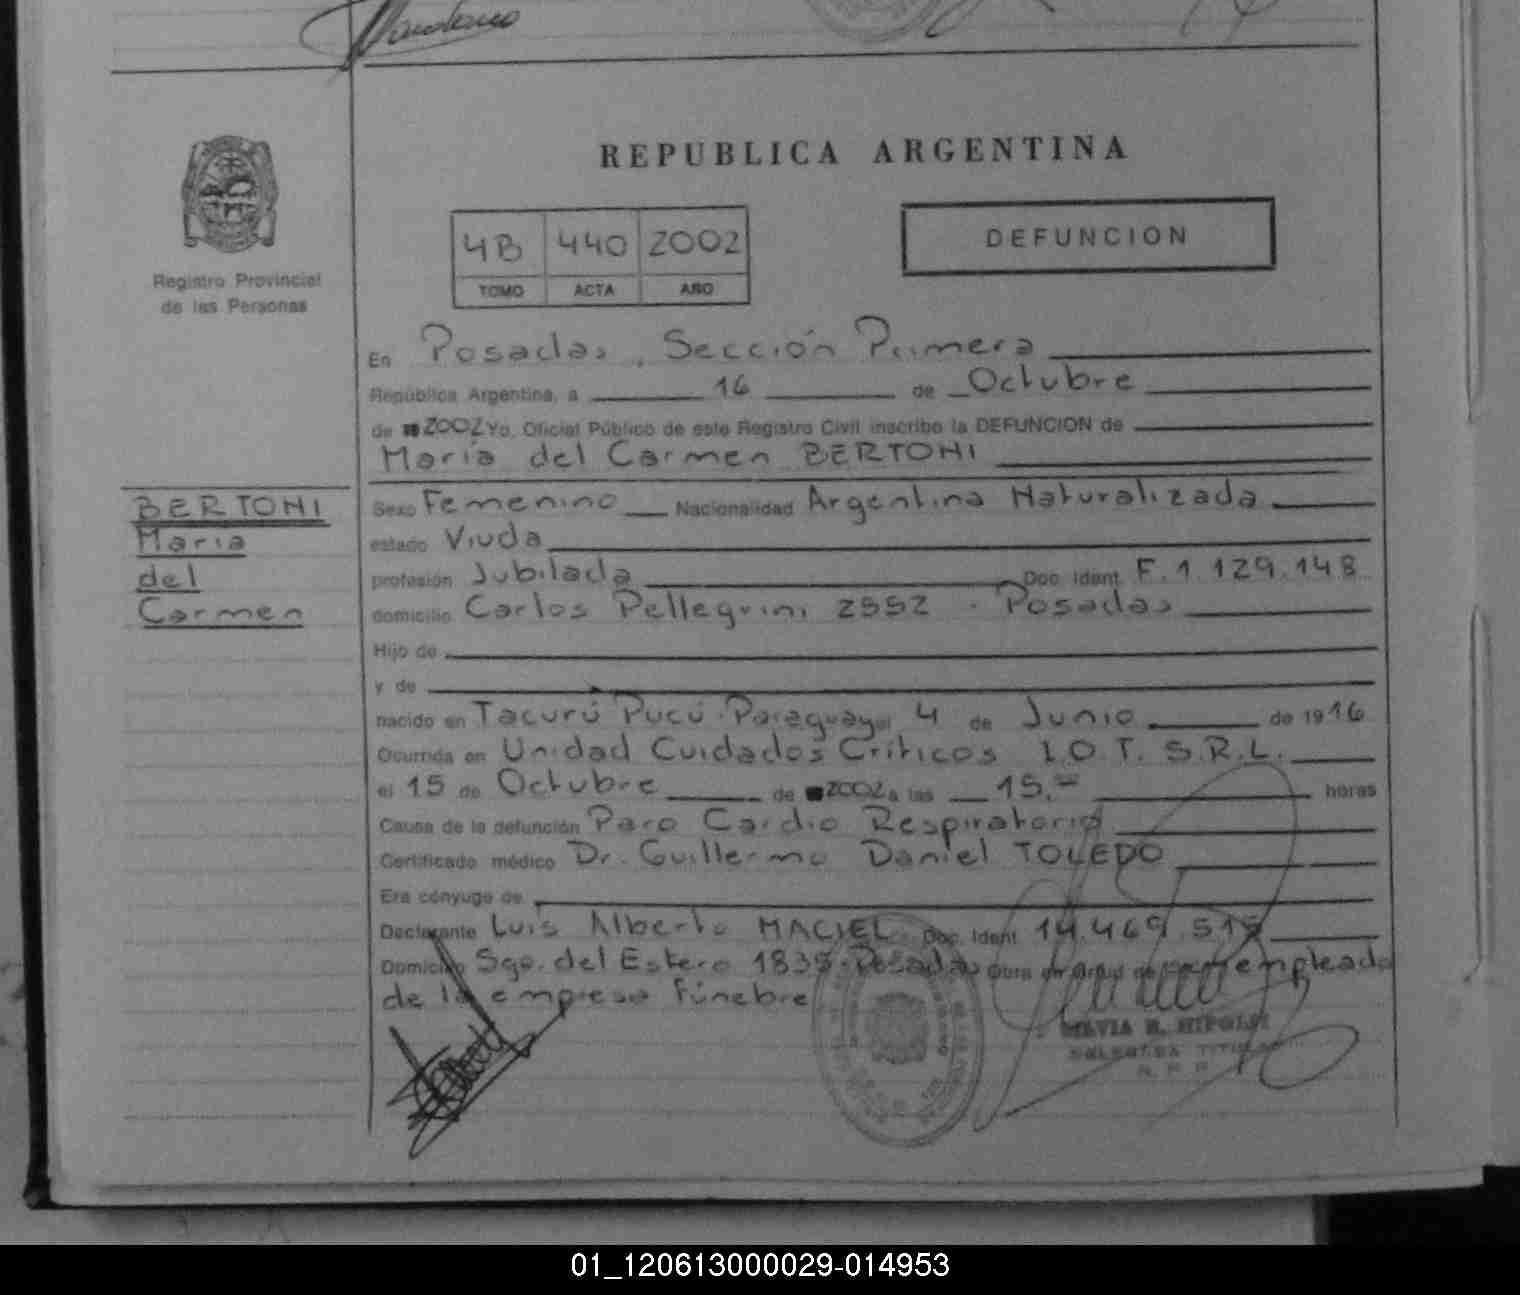 REPUBLICA ARGENTINA
Registro Provincial
de las Personas
4B 440 2002
TOMO ACTA AÑO
DEFUNCION
En Posadas, Sección Primera
República Argentina, a 16 de Octubre
de 2002 Yo, Oficial Público de este Registro Civil inscribo la DEFUNCION de
María del Carmen BERTONI
BERTONI
Maria
del
Carmen
Sexo Femenino Nacionalidad Argentina Naturalizada
estado Viuda
profesión Jubilada Doc. Ident. F. 1.129.148
domicilio Carlos Pellegrini 2552 - Posadas
Hijo de
y de
nacido en Tacurú Pucú - Paraguay el 4 de Junio de 1916
Ocurrida en Unidad Cuidados Críticos I.O.T. S.R.L.
el 15 de Octubre de 2002 a las 15.- horas
Causa de la defunción Paro Cardio Respiratorio
Certificado médico Dr. Guillermo Daniel TOLEDO
Era cónyuge de
Declarante Luis Alberto MACIEL Doc. Ident. 14.469.515
Domicilio Sgo. del Estero 1835 - Posadas Obra en empleado
de la empresa fúnebre
01_120613000029-014953